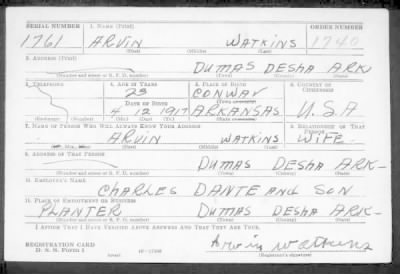 SERIAL NUMBER 1. NAME (Print) ORDER NUMBER
1761 ARVIN WATKINS 1740
(First) (Middle) (Last)
2. ADDRESS (Print)
DUMAS DESHA ARK
(Number and street or R. F. D. number) (Town) (County) (State)
3. TELEPHONE 4. AGE IN YEARS 5. PLACE OF BIRTH 6. COUNTRY OF CITIZENSHIP
23 CONWAY
DATE OF BIRTH (Town or county)
4 12 1917 ARKANSAS U.S.A
(Exchange) (Number) (Mo.) (Day) (Yr.) (State or country)
7. NAME OF PERSON WHO WILL ALWAYS KNOW YOUR ADDRESS 8. RELATIONSHIP OF THAT PERSON
ARVIN WATKINS WIFE
(First) (Middle) (Last)
9. ADDRESS OF THAT PERSON
DUMAS DESHA ARK-
(Number and street or R. F. D. number) (Town) (County) (State)
10. EMPLOYER'S NAME
CHARLES DANTE AND SON
11. PLACE OF EMPLOYMENT OR BUSINESS
PLANTER DUMAS DESHA ARK-
(Number and street or R. F. D. number) (Town) (County) (State)
I AFFIRM THAT I HAVE VERIFIED ABOVE ANSWERS AND THAT THEY ARE TRUE.
REGISTRATION CARD Arvin Watkins
D. S. S. Form 1